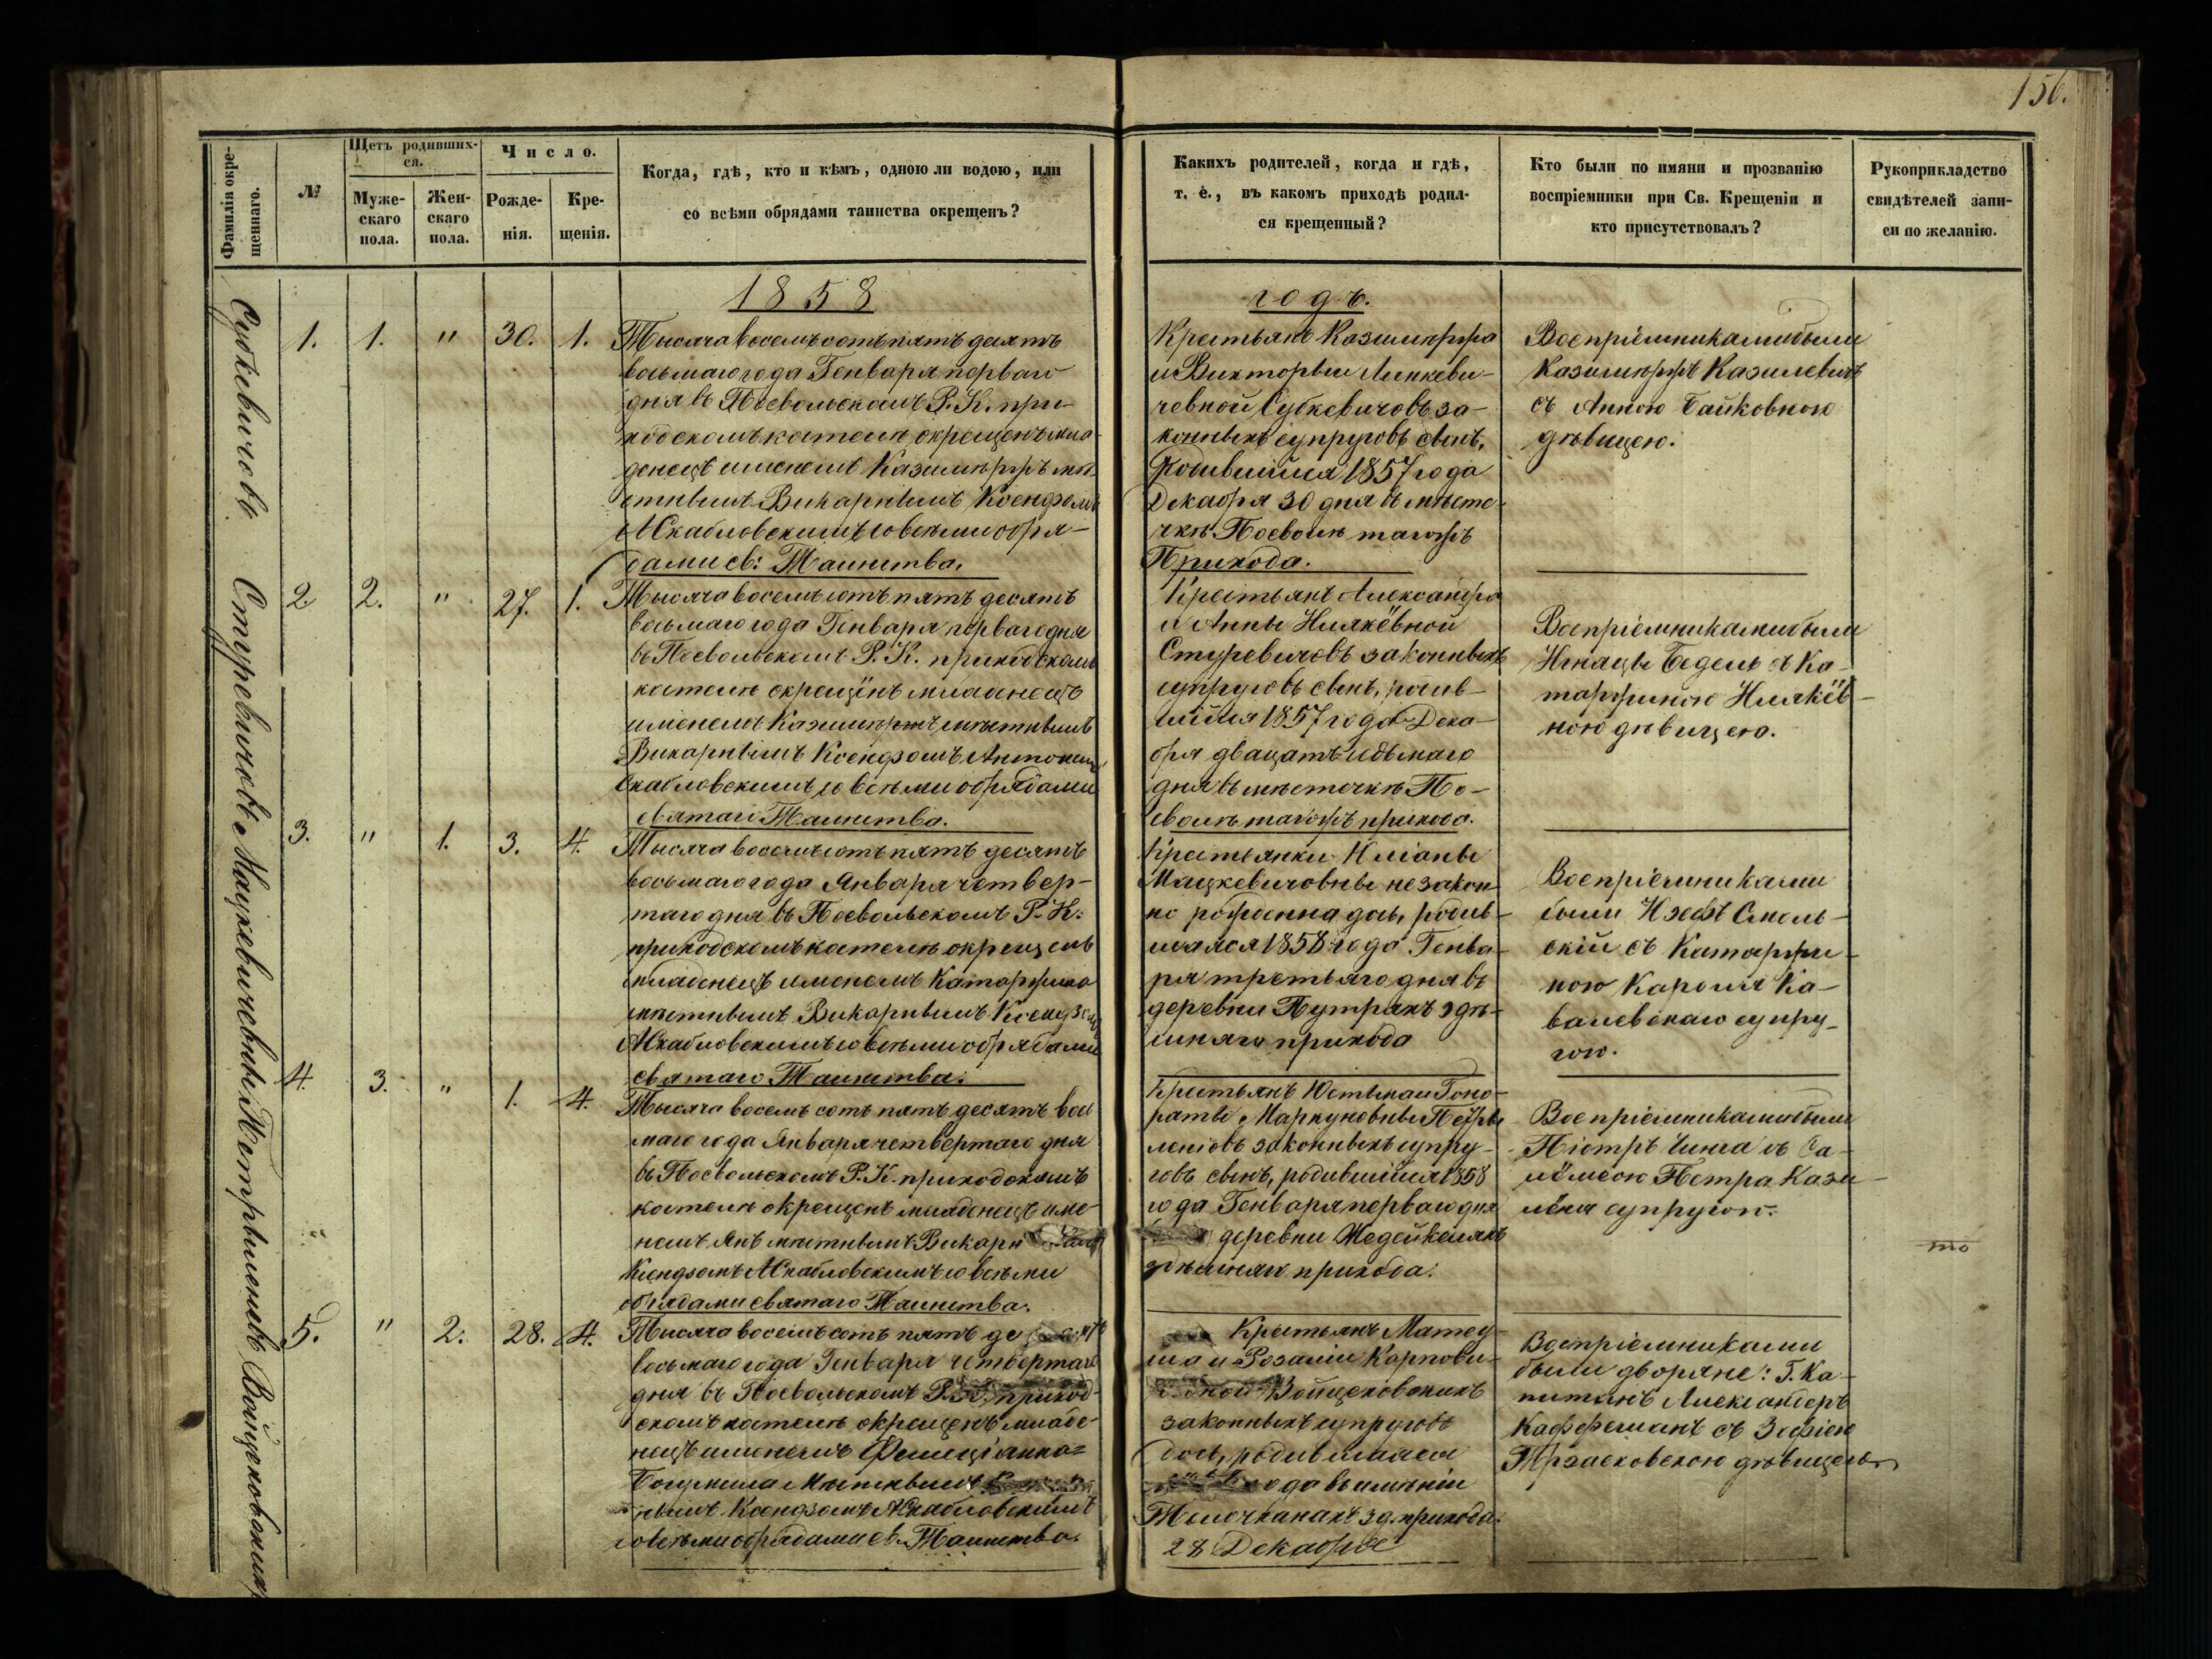 156.
Фамилія окре-
щеннаго.
№
Щетъ родивших-
ся.
Муже-
скаго
пола.
Жен-
скаго
пола.
Число.
Рожде-
нія.
Кре-
щенія.
Когда, гдѣ, кто и кѣмъ, одною ли водою, или
со всѣми обрядами таинства окрещенъ?
Какихъ родителей, когда и гдѣ,
т. е., въ какомъ приходѣ родил-
ся крещенный?
Кто были по имяни и прозванію
воспріемники при Св. Крещеніи и
кто присутствовалъ?
Рукоприкладство
свидѣтелей запи-
си по желанію.
1858
годъ.
Суткевичовъ
1. 1. " 30. 1.
Тысяча восемъ сотъ пятъ десятъ
восьмаго года Генваря перваго
дня въ Посвольскомъ Р. К. при-
ходскомъ костелѣ окрещенъ мла-
денецъ именемъ Казимѣржъ мѣ-
стнымъ Викарнымъ Ксендзомъ
А Скабловскимъ со всѣми обря-
дами св: Таинства.
Крестьянъ Казимѣржа
и Викторыи Линкеви-
чевной Суткевичовъ за-
конныхъ супруговъ сынъ,
родившійся 1857 года
Декабря 30 дня в мѣсте-
чкѣ Посволѣ тагожъ
Прихода.
Воспріемниками были
Казимѣржъ Казилевичъ
съ Анною Байковною
дѣвицею.
Стуревичовъ
2. 2. " 27. 1.
Тысяча восемъ сотъ пятъ десятъ
восьмаго года Генваря перваго дня
въ Посвольскомъ Р. К. приходскомъ
костелѣ окрещёнъ младенецъ
именемъ Казимѣржъ мѣстнымъ
Викарнымъ Ксендзомъ Антонимъ
Скабловскимъ со всѣми обрядами
святаго Таинства.
Крестьянъ Александра
и Анны
Стуревичовъ законныхъ
супруговъ сынъ, родив-
шійся 1857 года Дека-
бря двацатъ седьмаго
дня въ мѣсточкѣ По-
сволѣ тагожъ прихода.
Воспріемниками были
Игнацы Бедель с Ка-
таржиною
ною дѣвицею.
Мацкевичовны
3. " 1. 3. 4.
Тысяча восемъ сотъ пятъ десятъ
восьмаго года Января четвер-
таго дня въ Посвольскомъ Р. К:
приходскомъ костелѣ окрещенъ
младенецъ именемъ Катаржина
мѣстнымъ Викарнымъ Ксендзомъ
А Скабловскимъ со всѣми обрядами
святаго Таинства.
Крестьянки Юліаны
Мацкевичовны незакон-
но рожденна дочь, родив-
шаяся 1858 года Генва-
ря третьяго дня въ
деревни Путрахъ здѣ-
шняго прихода
Воспріемниками
были Юзефъ Смоль-
скій съ Катаржи-
ною Кароля Ка-
валевскаго супру-
гою.
4. 3. " 1. 4.
Тысяча восемъ сотъ пятъ десятъ вось
маго года Января четвертаго дня
въ Посвольскомъ Р. К. приходскомъ
костелѣ окрещенъ младенецъ име-
немъ Янъ мѣстнымъ Викарн
Ксендзомъ А Скабловскимъ со всѣми
обрядами святаго Таинства.
Крестьянъ Юстына и Гоно-
раты Маркуновны
законныхъ супру-
говъ сынъ, родившійся 1858
года Генваря перваго дня
деревни Жедейкеляхъ
здѣшняго прихода.
Воспріемниками были
Піотръ съ Са-
ломеою Петра
супругою.
то
Войцеховскихъ
5. " 2. 28. 4.
Тысяча восемъ сотъ пятъ де
восьмаго года Генваря четвертаго
дня въ Посвольскомъ Р. К. приход-
скомъ костелѣ окрещенъ младе-
нецъ именемъ Фелиціянна=
Богумила Мѣстнымъ
нымъ Ксендзомъ А Скабловскимъ
со всѣми обрядами св. Таинства.
Крестьянъ Матеу-
ша и Розаліи Карпови-
Войцеховскихъ
законныхъ супруговъ
дочь, родившаяся
года въ имѣніи
здѣ. прихода.
28 Декабря
Воспріемниками
были дворяне: Г. Ка-
питанъ Александеръ
Каффеманъ съ Зофіею
дѣвицею